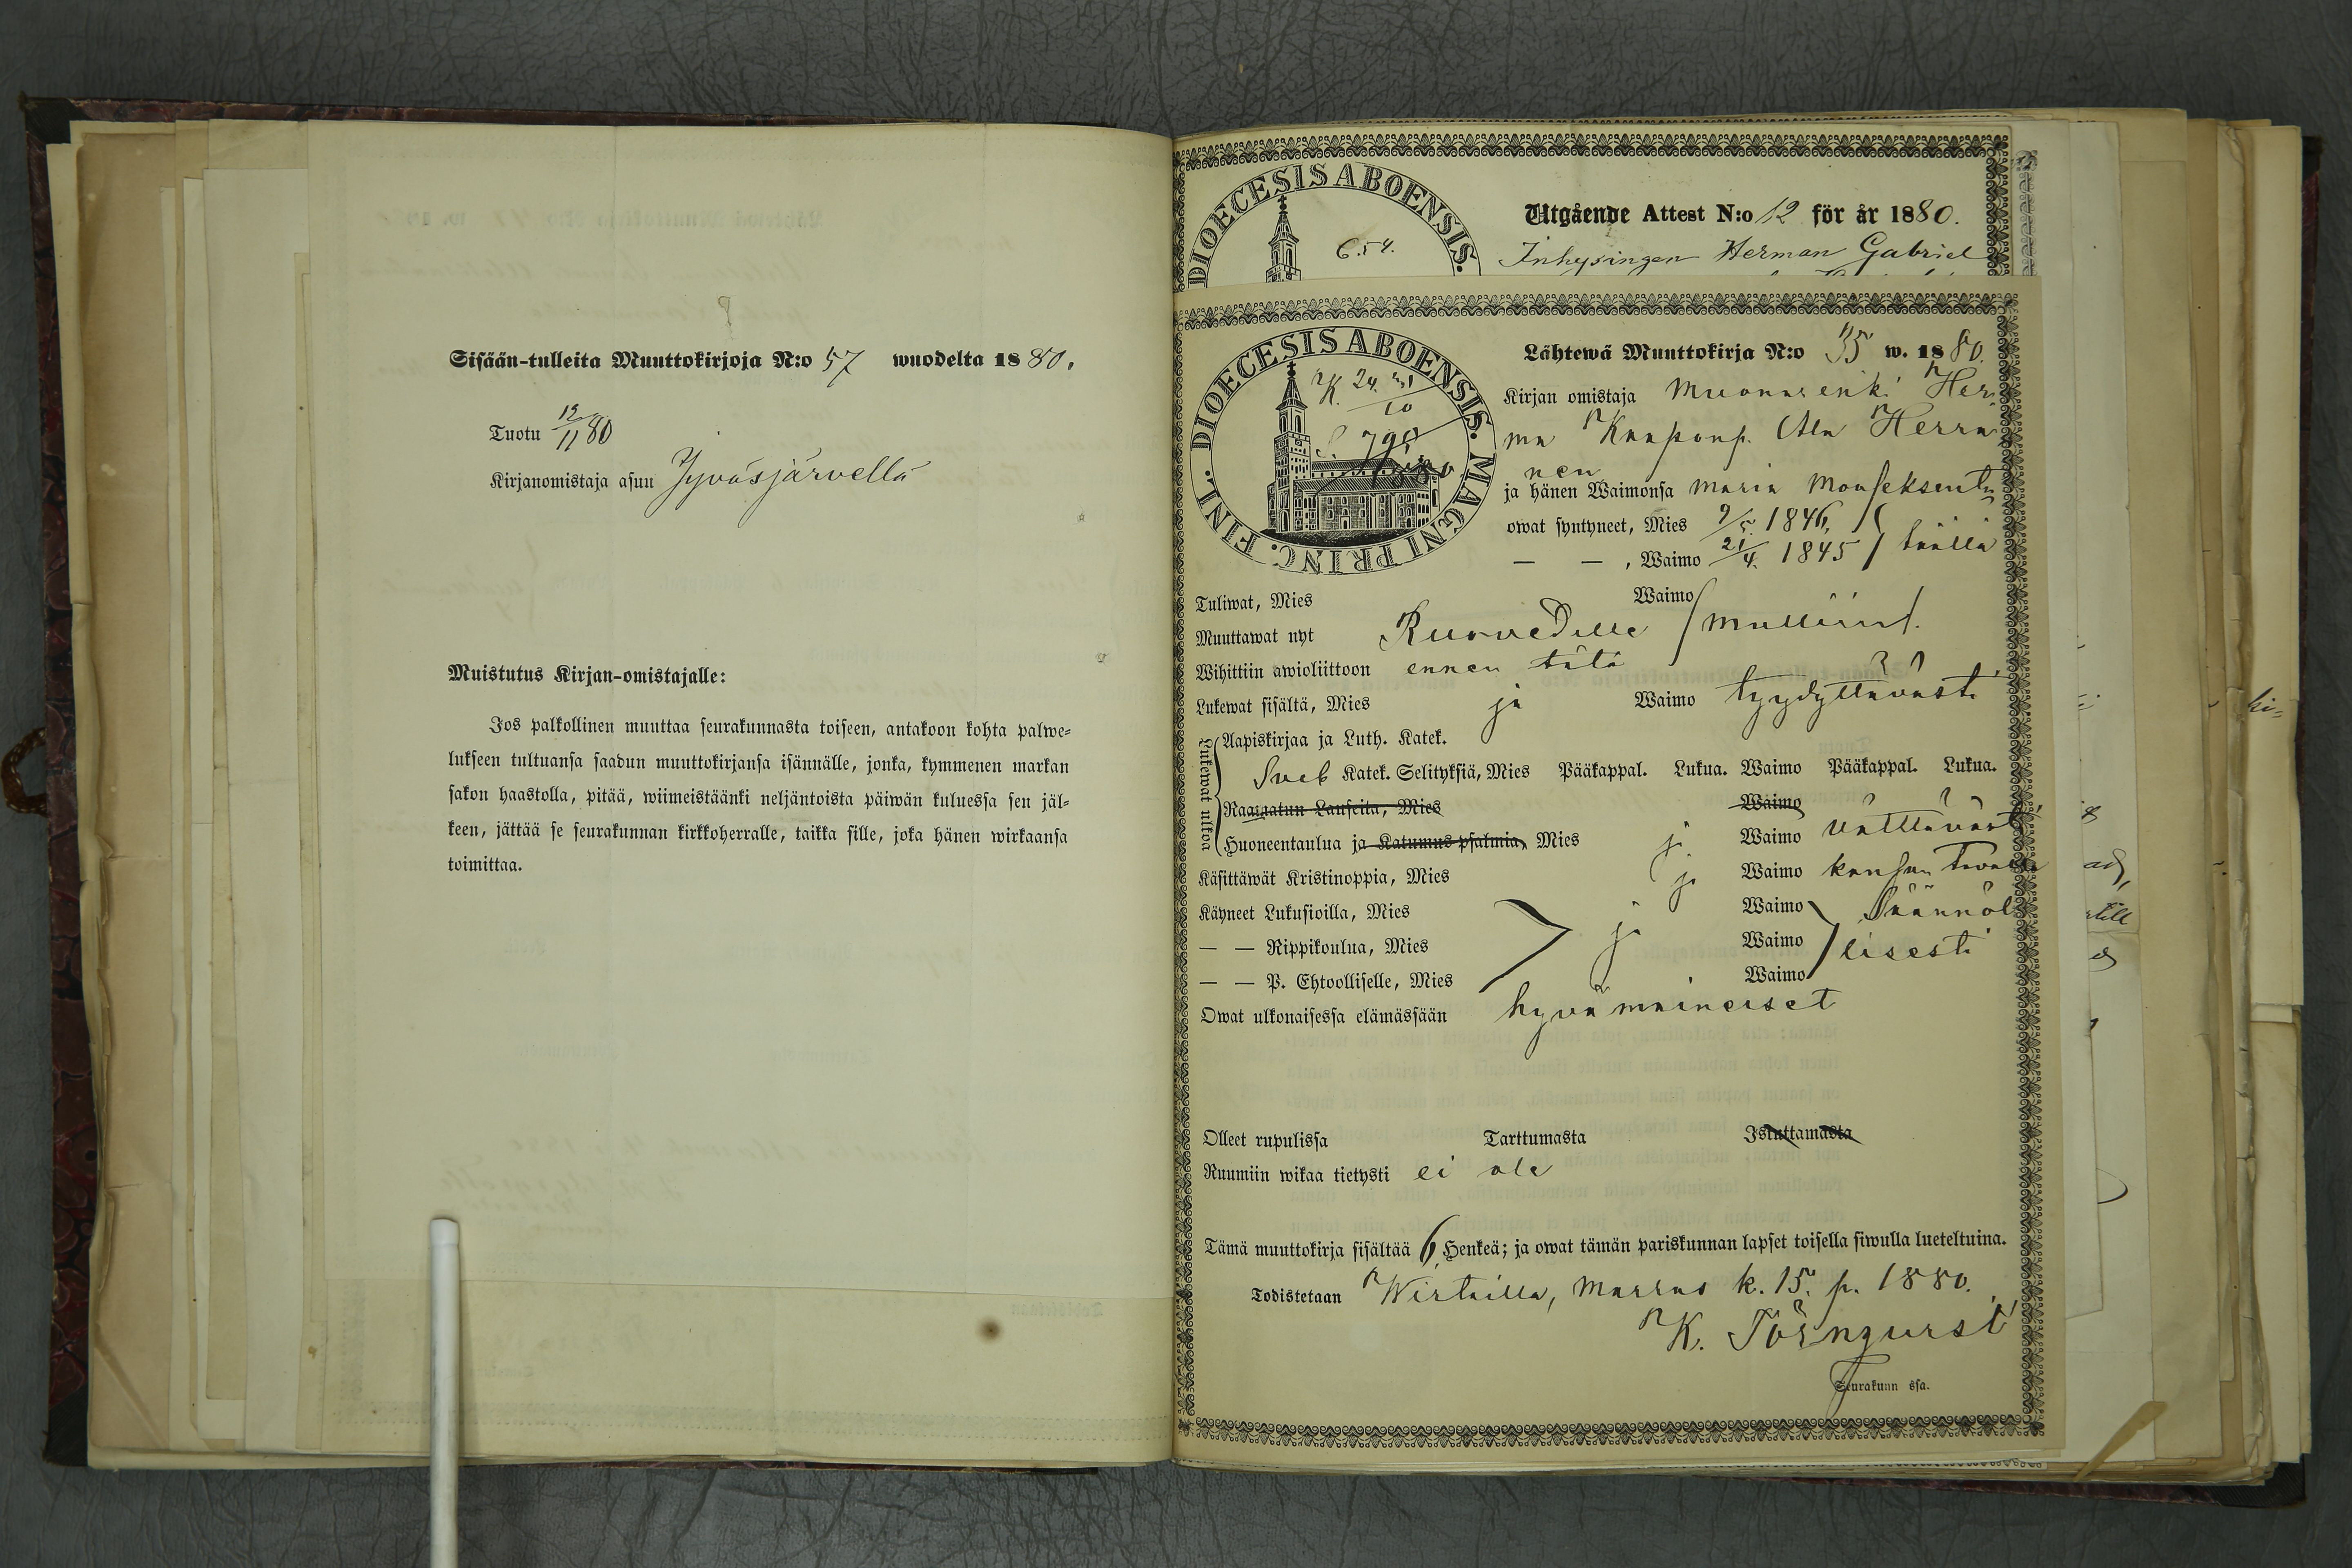 Sisään-tulleita Muuttokirjoja N:o 57 wuodelta 1880.
Tuotu 12/11 80
Kirjanomistaja asuu Jyväsjärvellä
Muistutus Kirjan-omistajalle:
Jos palkollinen muuttaa seurakunnasta toiseen, antakoon kohta palwe-
lukseen tultuansa saadun muuttokirjansa isännälle, jonka, kymmenen markan
sakon haastolla, pitää, wiimeistäänki neljäntoista päiwän kuluessa sen jäl-
keen, jättää se seurakunnan kirkkoherralle, taikka sille, joka hänen wirkaansa
toimittaa.
DIOECESIS ABOENSIS.
6.54.
Utgående Attest N:o 12 för år 1880.
Inhysingen Herman Gabriel
DIOECESIS ABOENSIS. MAGNI PRINC. FINL.
Lähtewä Muuttokirja N:o 35 w. 1880.
Kirjan omistaja Muonarenki Her
ma Kaaponp. Ala Herra
nen
ja hänen Waimonsa Maria
owat syntyneet, Mies 9/5 1846,
— — , Waimo 21/4. 1845 täällä
Tuliwat, Mies Waimo
Muuttawat nyt Ruovedelle
Wihittiin awioliittoon ennen tätä
Lukewat sisältä, Mies ja Waimo tyydyttävästi
Lukewat ulkoa
Aapiskirjaa ja Luth. Kateк.
Sveb Katek. Selityksiä, Mies Pääkappal. Lukua. Waimo Pääkappal. Lukua.
Raamatun Lauseita, Mies Waimo
Huoneentaulua ja Katumus-psalmia, Mies ja Waimo välttävästi
Käsittäwät Kristinoppia, Mies ja Waimo kansan tavalla
Käyneet Lukusioilla, Mies ja Waimo Säännöl
— — Rippikoulua, Mies Waimo lisesti
— — P. Ehtoolliselle, Mies Waimo
Owat ulkonaisessa elämässään hyvämaineiset
Olleet rupulissa Tarttumasta Istuttamasta
Ruumiin wikaa tietysti ei ole
Tämä muuttokirja sisältää 6 Henkeä; ja owat tämän pariskunnan lapset toisella siwulla lueteltuina.
Todistetaan Wirtailla, Marras k. 15. p. 1880.
K. Törnqurst
Seurakunn ssa.